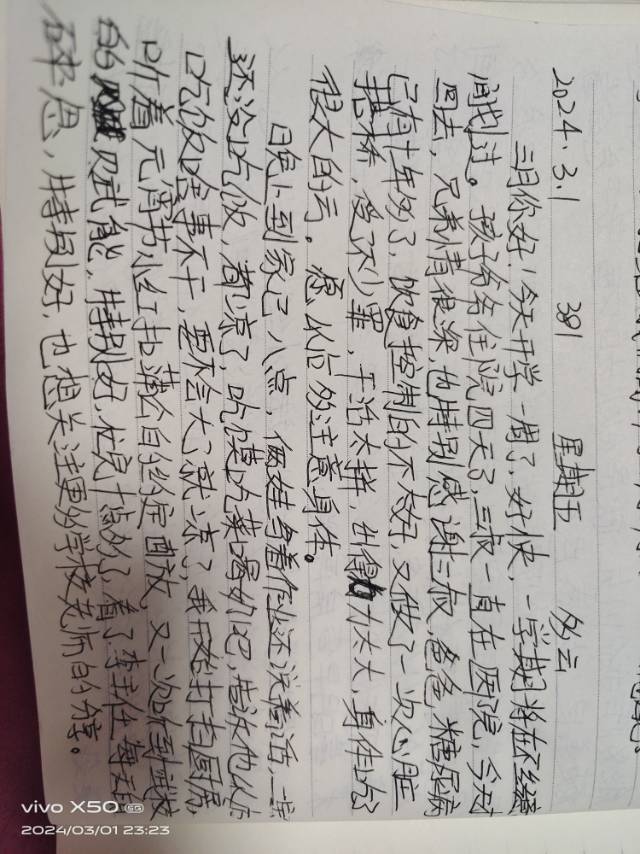 2024.3.1 381 星期五 多云
三月你好!今天开学一周了,好快,一学期将在不经
间划过。孩子爷爷住院四天了,三叔一直在医院,今天才
回去,兄弟情很深,也特别感谢三叔,爸爸糖尿病
已有十年多了,饮食控制的不太好,又做了一次心脏
搭桥,受不少罪,干活太拼,出得力太大,身体吃了
很大的亏。愿以后多注意身体。
晚上到家已八点,俩娃写着作业还说着话,一
还没吃饭,都凉了,吃馍吃菜喝奶吧,告诉他以后
吃饭啥事不干,要不会大了就凉了,我开始打扫厨房,
听着元宵节小红拍蒲公自的约定重放,又一次听到
的 乃武能,特别好,忙良十点多了,看了李主任每天的
碎思,特别好,也想关注更多学校老师的分享。
vivo X50 5G
2024/03/01 23:23